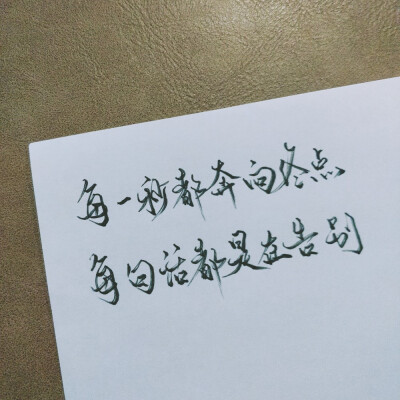 每一秒都奔向终点
每句话都是在告别